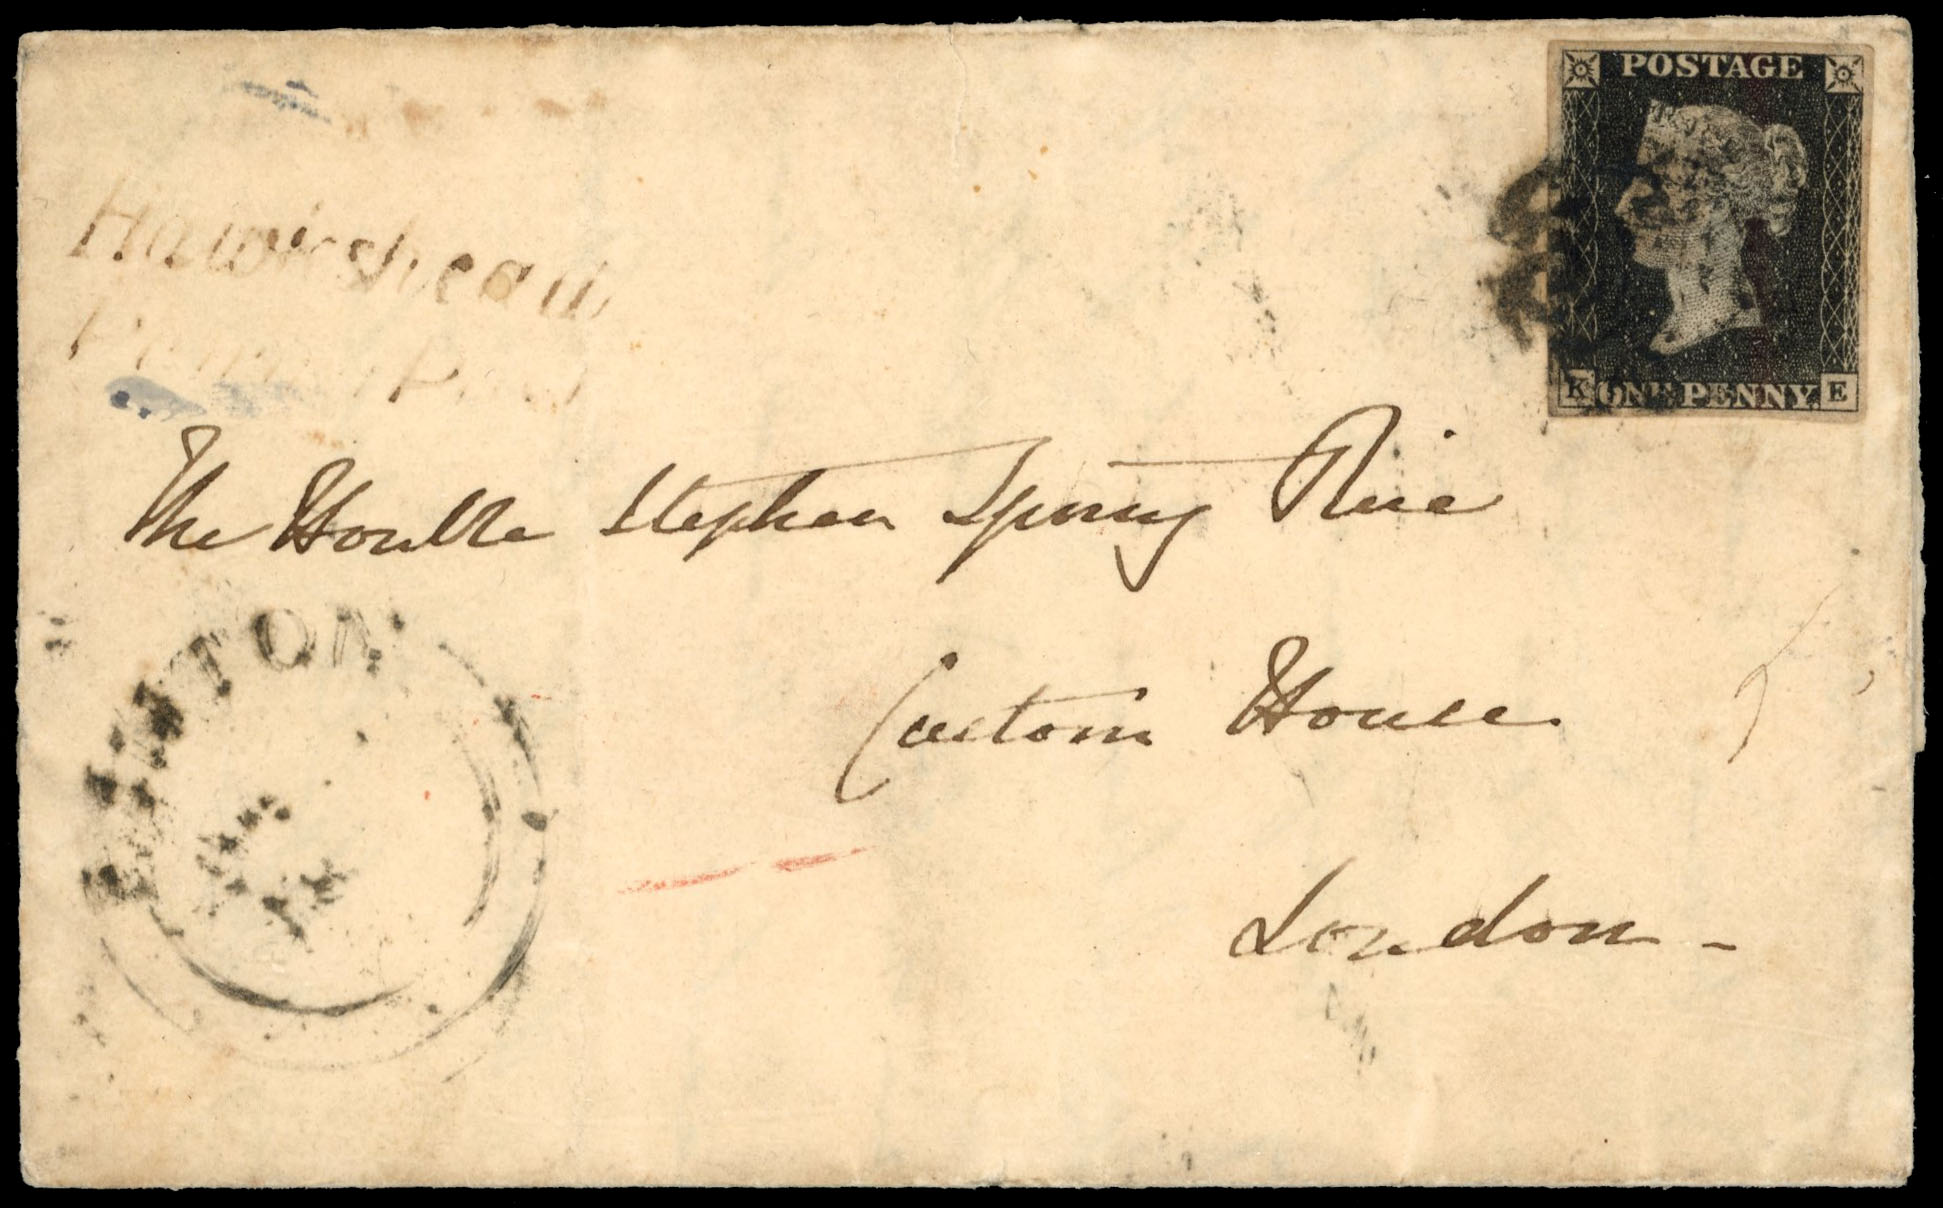 POSTAGE
K ONE PENNY. E
Hawkshead
Penny Post
The Honble Stephen Spring Rice
Custom House
London -